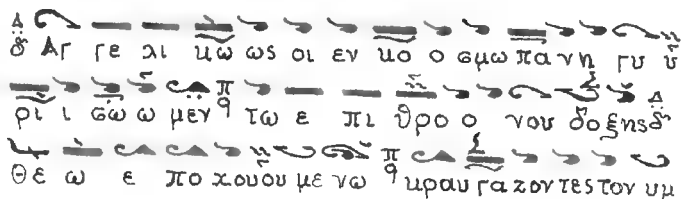 δ Αγ γε λι κω ως οι εν κο ο σμω πα νη γυ υ
ρι ι σω ω μεν π q τω ε πι θρο ο νου δο ξης δ
Θε ω ε πο χου ου με νω π q κραυ γα ζον τες τον υμ